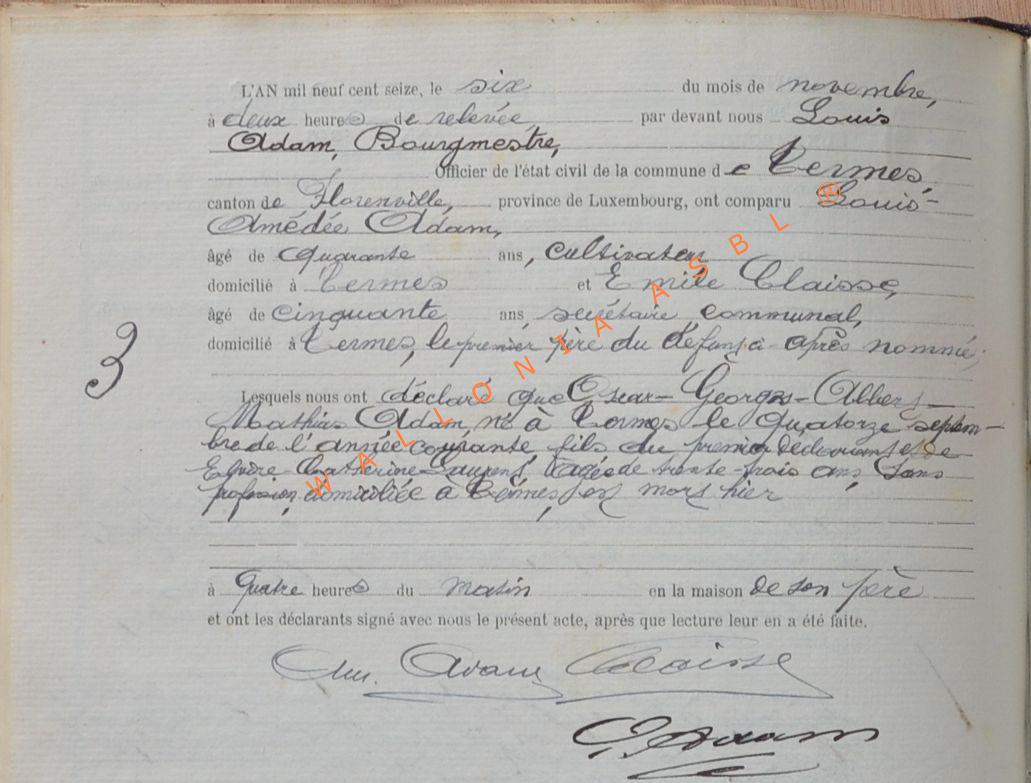 L'AN mil neuf cent seize, le six du mois de novembre,
à deux heures de relevée par devant nous Louis
Adam, Bourgmestre,
Officier de l'état civil de la commune de Termes,
canton de Florenville, province de Luxembourg, ont comparu Louis-
Amédée Adam,
âgé de quarante ans, cultivateur
domicilié à Termes et Emile Claisse,
âgé de cinquante ans, secrétaire communal,
domicilié à Termes, le premier père du défunt ci-après nommé,
3
Lesquels nous ont déclaré que Oscar-Georges-Albert-
Mathias Adam, né à Termes le quatorze septem-
bre de l'année courante, fils du premier déclarant et de
Catherine Laurent, âgée de trente-trois ans, sans
profession, domiciliée à Termes, est mort hier
à quatre heures du matin en la maison de son père
et ont les déclarants signé avec nous le présent acte, après que lecture leur en a été faite.
Am. Adam Claisse
L. Adam
WALLONIA ASBL ®